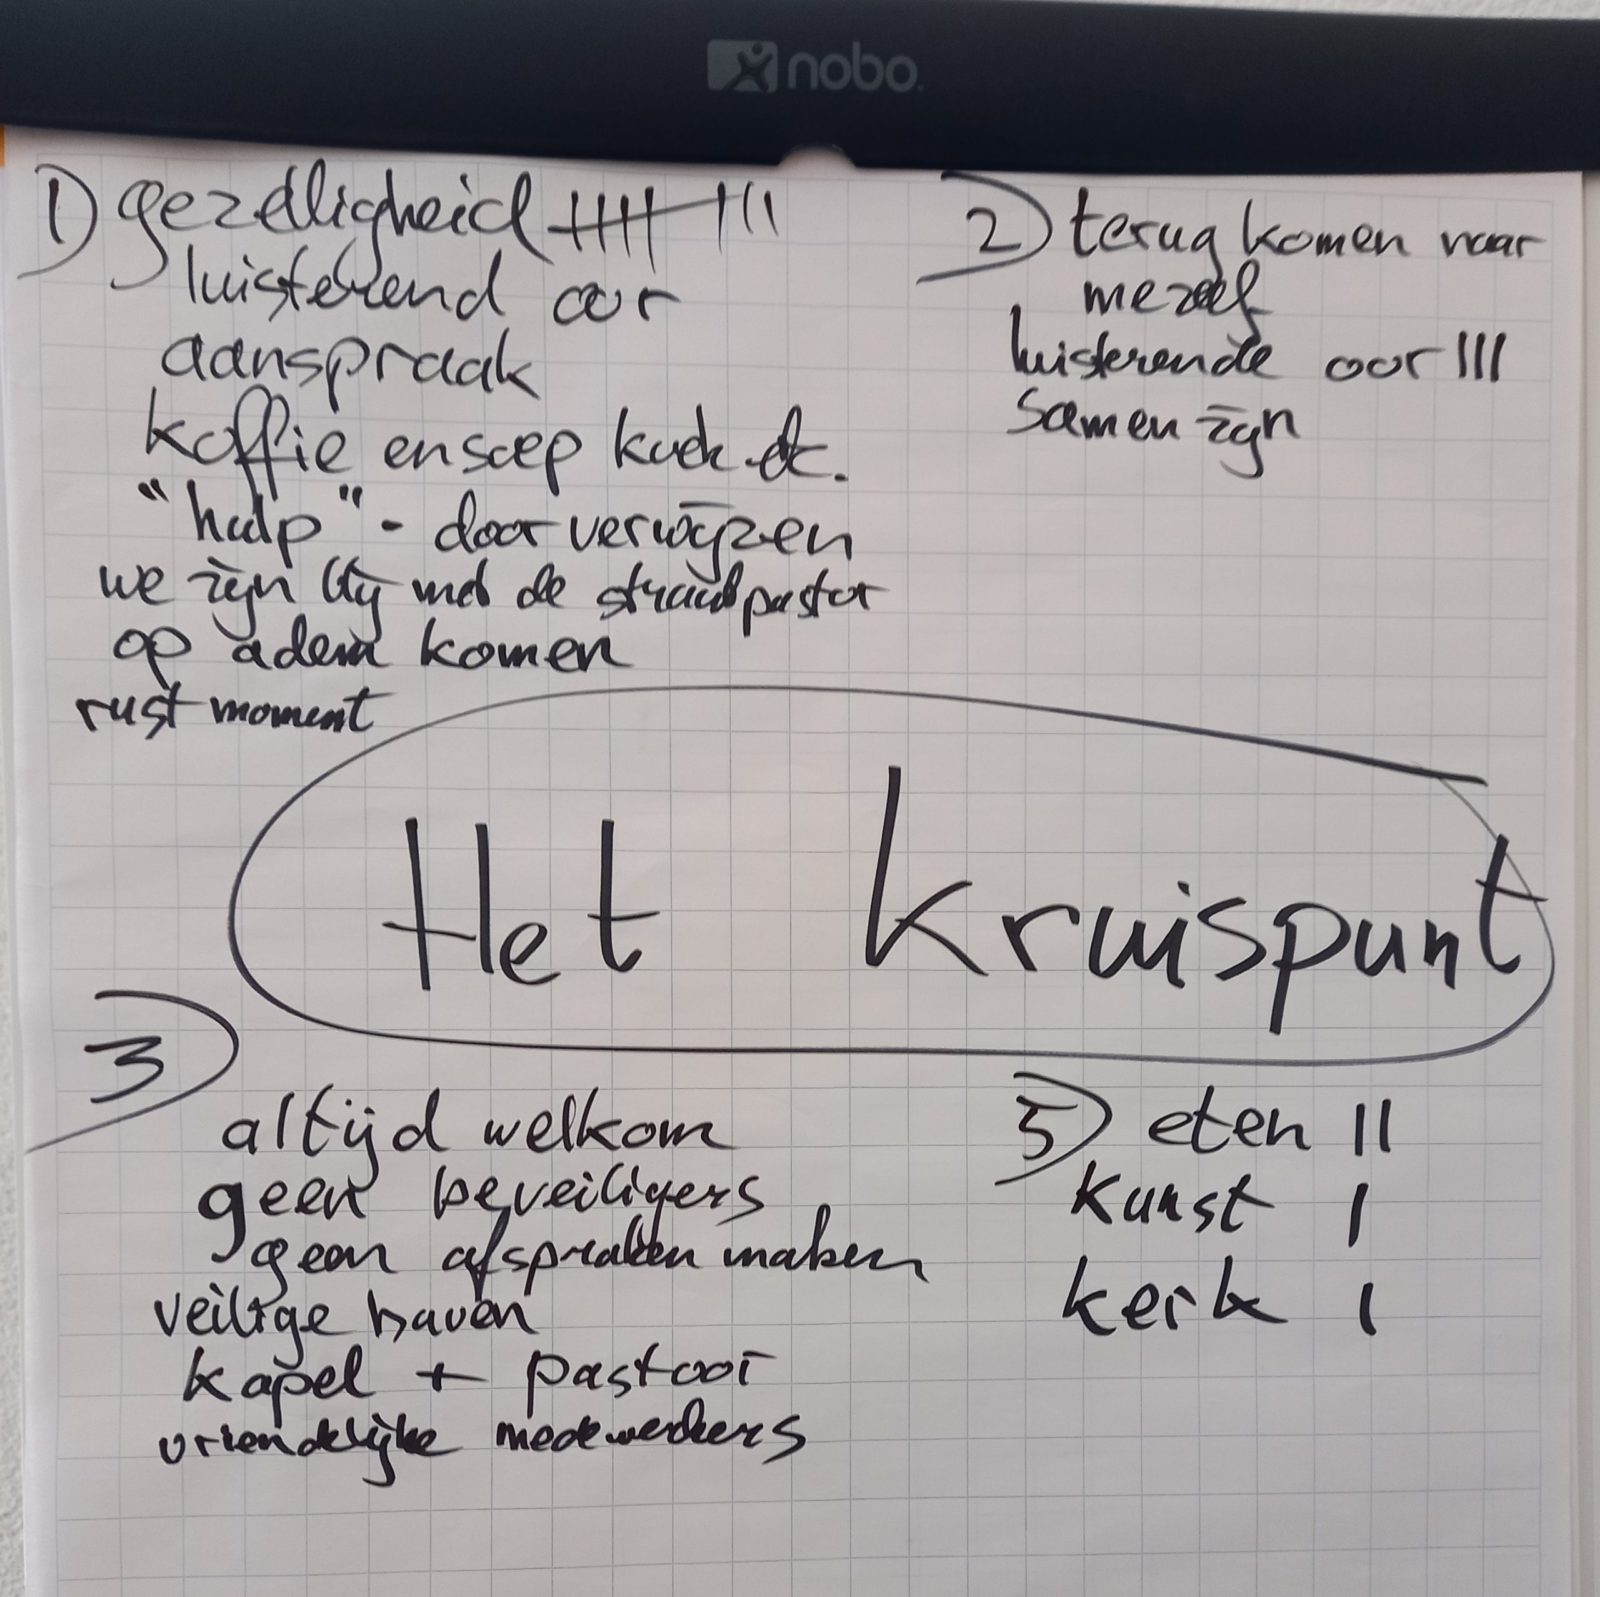 nobo
1) gezelligheid |||| |||
luisterend oor
aanspraak
koffie en soep koek etc.
"hulp" - doorverwijzen
we zijn blij met de straatpastor
op adem komen
rust moment
2) terug komen naar
mezelf
luisterende oor |||
samen zijn
Het Kruispunt
3)
altijd welkom
geen beveiligers
geen afspraken maken
veilige haven
kapel + pastoor
vriendelijke medewerkers
5) eten ||
kunst |
kerk |